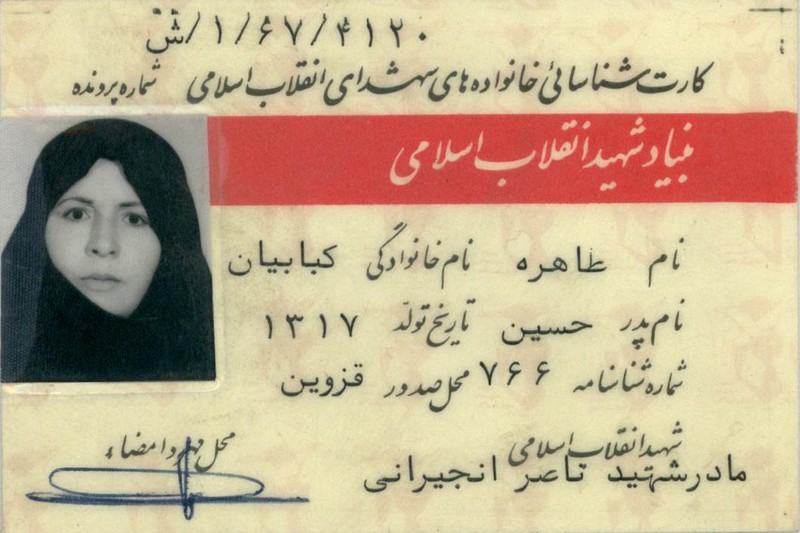 ش/۱/۶۷/۴۱۲۰
کارت شناسائی خانواده های شهدای انقلاب اسلامی شماره پرونده
بنیاد شهید انقلاب اسلامی
نام طاهره نام خانوادگی کبابیان
نام پدر حسین تاریخ تولد ۱۳۱۷
شماره شناسنامه ۷۶۶ محل صدور قزوین
شهید انقلاب اسلامی محل مهر و امضاء
مادر شهید ناصر انجیرانی